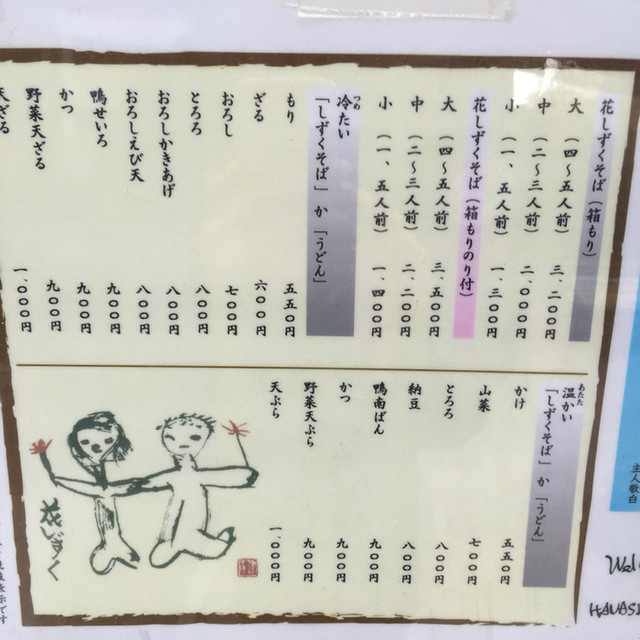 花しずくそば（箱もり）
大（四〜五人前）三、二〇〇円
中（二〜三人前）二、〇〇〇円
小（一、五人前）一、三〇〇円
花しずくそば（箱もりのり付）
大（四〜五人前）三、五〇〇円
中（二〜三人前）二、二〇〇円
小（一、五人前）一、四〇〇円
冷たい
つめ
「しずくそば」か「うどん」
もり 五五〇円
ざる 六〇〇円
おろし 七〇〇円
とろろ 八〇〇円
おろしかきあげ 八〇〇円
おろしえび天 八〇〇円
鴨せいろ 九〇〇円
かつ 九〇〇円
野菜天ざる 九〇〇円
天ざる 一、〇〇〇円
温かい
あたた
「しずくそば」か「うどん」
かけ 五五〇円
山菜 七〇〇円
とろろ 八〇〇円
納豆 八〇〇円
鴨南ばん 九〇〇円
かつ 九〇〇円
野菜天ぷら 九〇〇円
天ぷら 一、〇〇〇円
花しずく
主人敬白